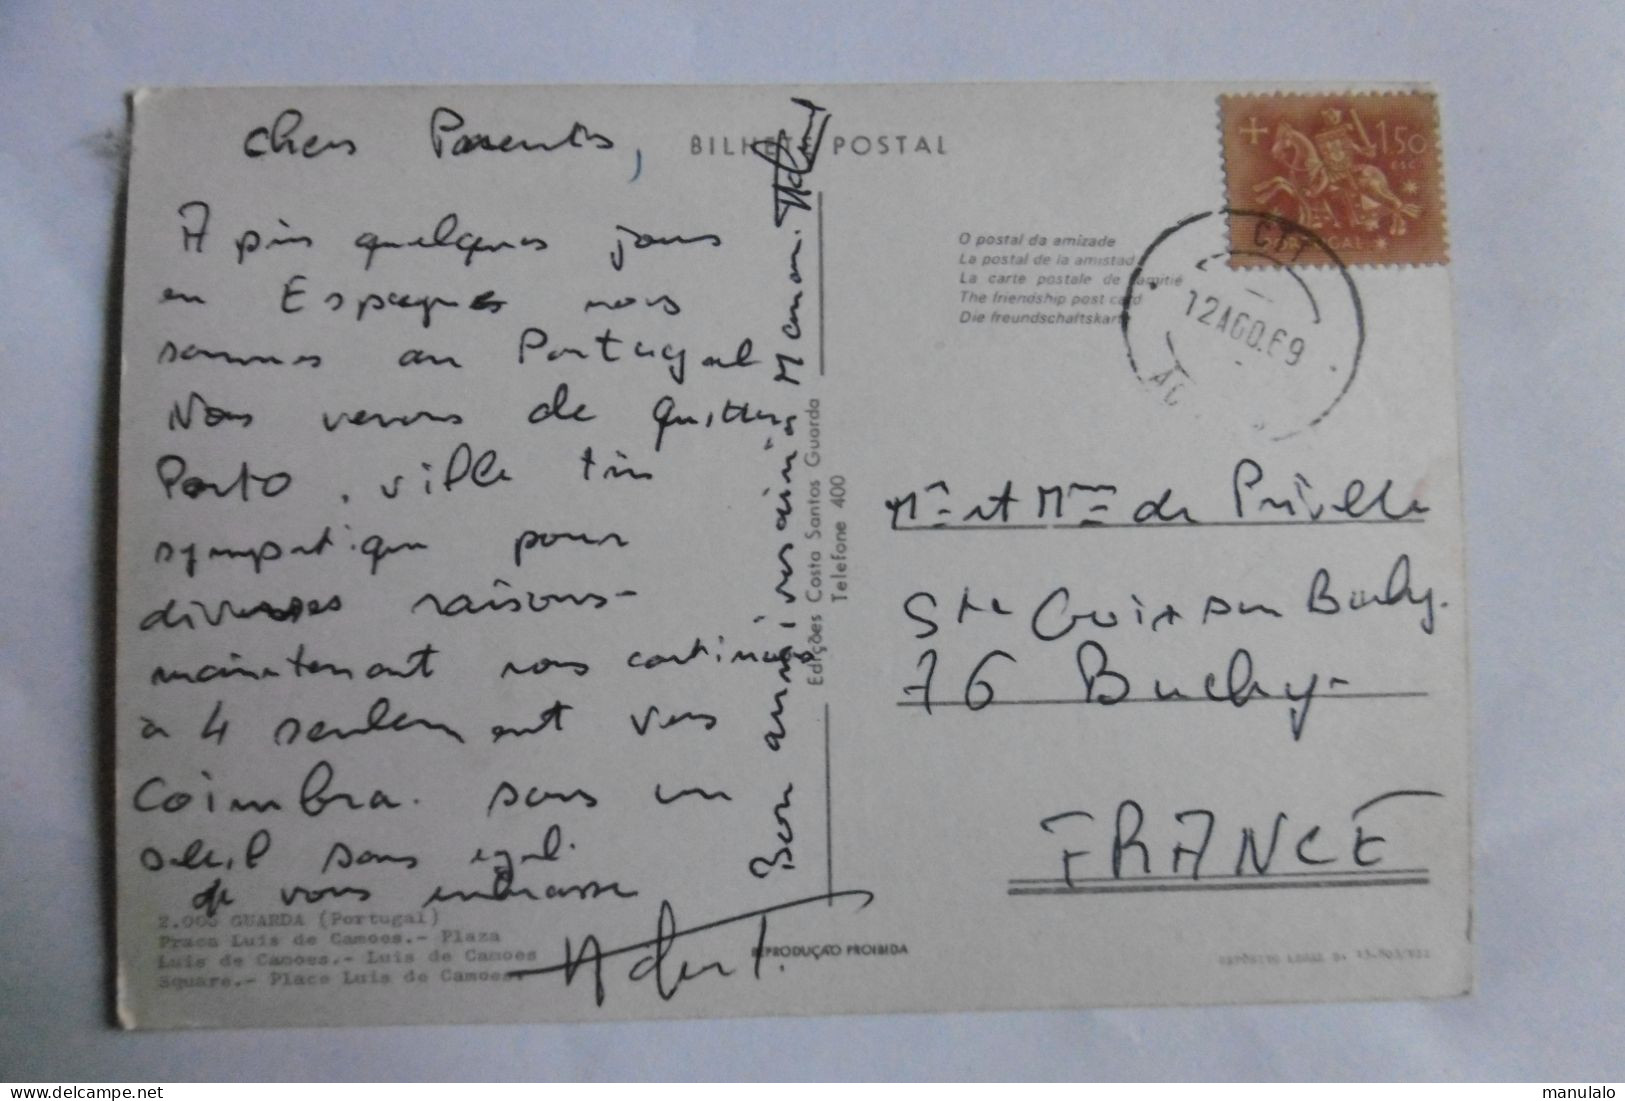 Chers Parents,
Apès quelques jours
en Espagnes nous
sommes au Portugal
Nous venons de quitter
Porto, ville très
sympatique pour
diverses raisons -
maintenant nous continuons
à 4 seulement vers
Coimbra. sous un
soleil sans egal.
Je vous embrasse
Bon anniversaire Maman.
BILHETE POSTAL
O postal da amizade
La postal de la amistad
La carte postale de l'amitié
The friendship post card
Die freundschaftskarte
1$50
ESC.
PORTUGAL
CTT
12 AGO. 69
Edições Costa Santos Guarda
Telefone 400
Mr et Mme de
Ste Croix sur Buchy.
76 Buchy -
FRANCE
2.006 GUARDA (Portugal)
Praca Luis de Camoes.- Plaza
Luis de Camoes.- Luis de Camoes
Square.- Place Luis de Camoes.
REPRODUÇÃO PROIBIDA
manulalo